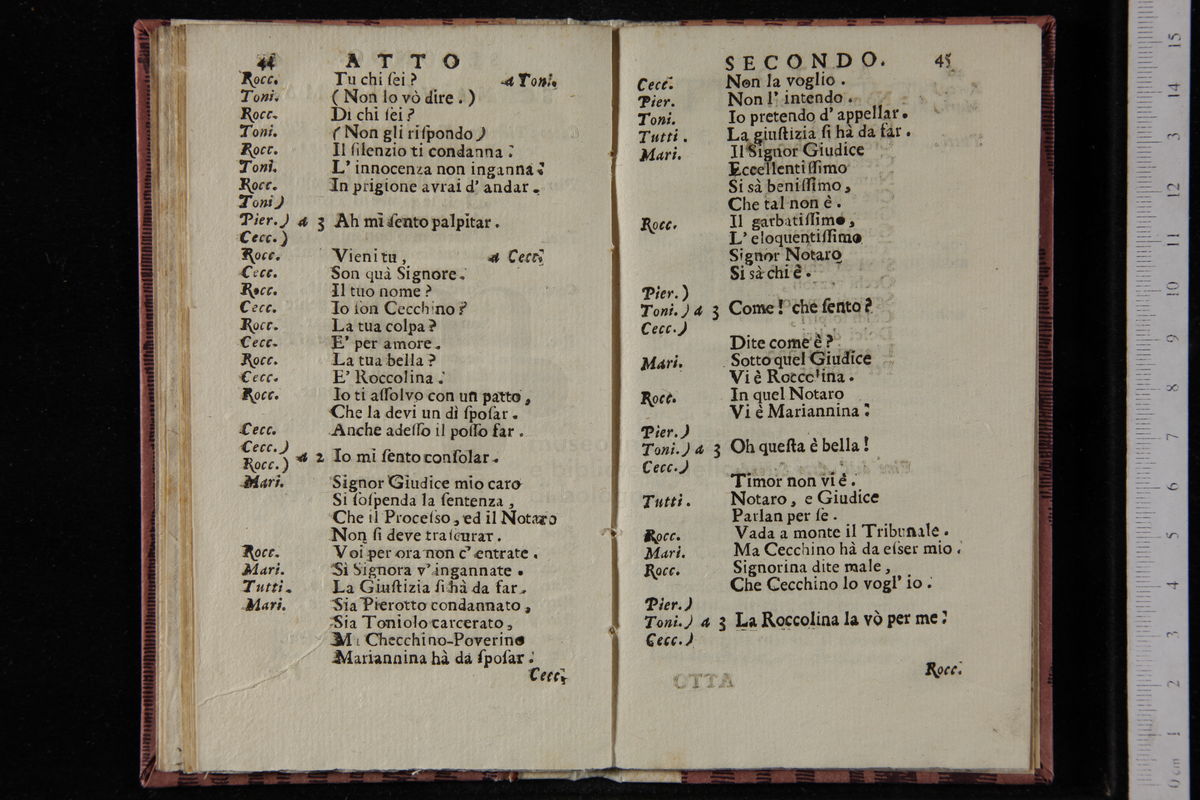 44 ATTO
Rocc. Tu chi ſei? a Toni.
Toni. (Non lo vò dire.)
Rocc. Di chi ſei?
Toni. (Non gli riſpondo)
Rocc. Il ſilenzio ti condanna.
Toni. L' innocenza non inganna.
Rocc. In prigione avrai d' andar.
Toni)
Pier.) a 3 Ah mi ſento palpitar.
Cecc.)
Rocc. Vieni tu, a Cecc.
Cecc. Son quà Signore.
Rocc. Il tuo nome?
Cecc. Io ſon Cecchino?
Rocc. La tua colpa?
Cecc. E' per amore.
Rocc. La tua bella?
Cecc. E' Roccolina.
Rocc. Io ti aſſolvo con un patto,
Che la devi un dì ſpoſar.
Cecc. Anche adeſſo il poſſo far.
Cecc.)
a 2 Io mi ſento conſolar.
Rocc.)
Mari. Signor Giudice mio caro
Si ſoſpenda la ſentenza,
Che il Proceſso, ed il Notaro
Non ſi deve traſcurar.
Rocc. Voi per ora non c' entrate.
Mari. Sì Signora v' ingannate.
Tutti. La Giuſtizia ſi hà da far.
Mari. Sia Pierotto condannato,
Sia Toniolo carcerato,
Ma Checchino-Poverino
Mariannina hà da ſpoſar.
Cecc.
SECONDO. 45
Cecc. Non la voglio.
Pier. Non l' intendo.
Toni. Io pretendo d' appellar.
Tutti. La giuſtizia ſi hà da far.
Mari. Il Signor Giudice
Eccellentiſſimo
Si sà beniſſimo,
Che tal non è.
Rocc. Il garbatiſſimo,
L' eloquentiſſimo
Signor Notaro
Si sà chi è.
Pier.)
Toni.) a 3 Come! che ſento?
Cecc.)
Dite come è?
Mari. Sotto quel Giudice
Vi è Roccolina.
Rocc. In quel Notaro
Vi è Mariannina.
Pier.)
Toni.) a 3 Oh queſta è bella!
Cecc.)
Timor non vi è.
Tutti. Notaro, e Giudice
Parlan per ſe.
Rocc. Vada a monte il Tribunale.
Mari. Ma Cecchino hà da eſser mio.
Rocc. Signorina dite male,
Che Cecchino lo vogl' io.
Pier.)
Toni.) a 3 La Roccolina la vò per me.
Cecc.)
Rocc.